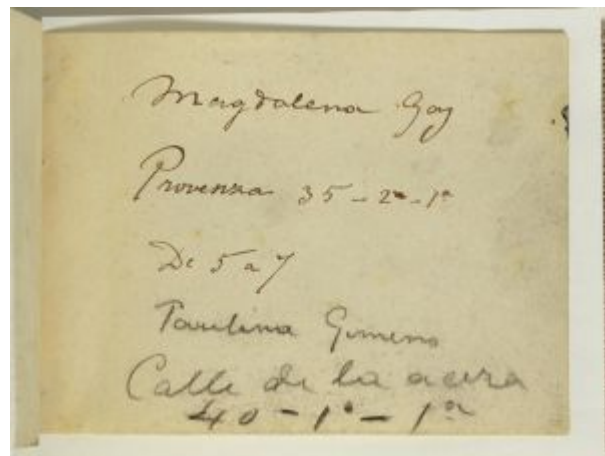 Magdalena Goy
Provenza 35-2º-1ª
De 5 a 7
Paulina Gimeno
Calle de la acera
40-1º-1ª